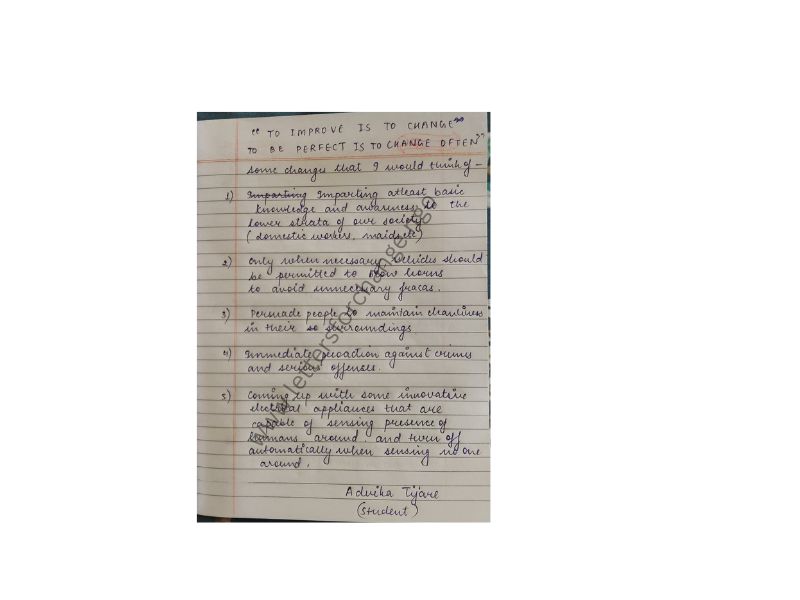 "TO IMPROVE IS TO CHANGE"
TO BE PERFECT IS TO CHANGE OFTEN"
Some changes that I would think of -
1) Imparting Imparting atleast basic
knowledge and awareness to the
lower strata of our society
(domestic workers, maids etc)
2) Only when necessary vehicles should
be permitted to blow horns
to avoid unnecessary fracas.
3) Persuade people to maintain cleanliness
in their so surroundings
4) Immediate proaction against crimes
and serious offenses.
5) Coming up with some innovative
electrical appliances that are
capable of sensing presence of
humans around. and turn off
automatically when sensing no one
around.
Advika Tijare
(Student)
www.lettersforchange.org